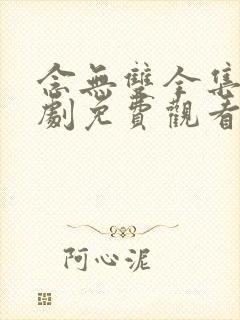 念無雙全集
劇免費觀看
阿心泥